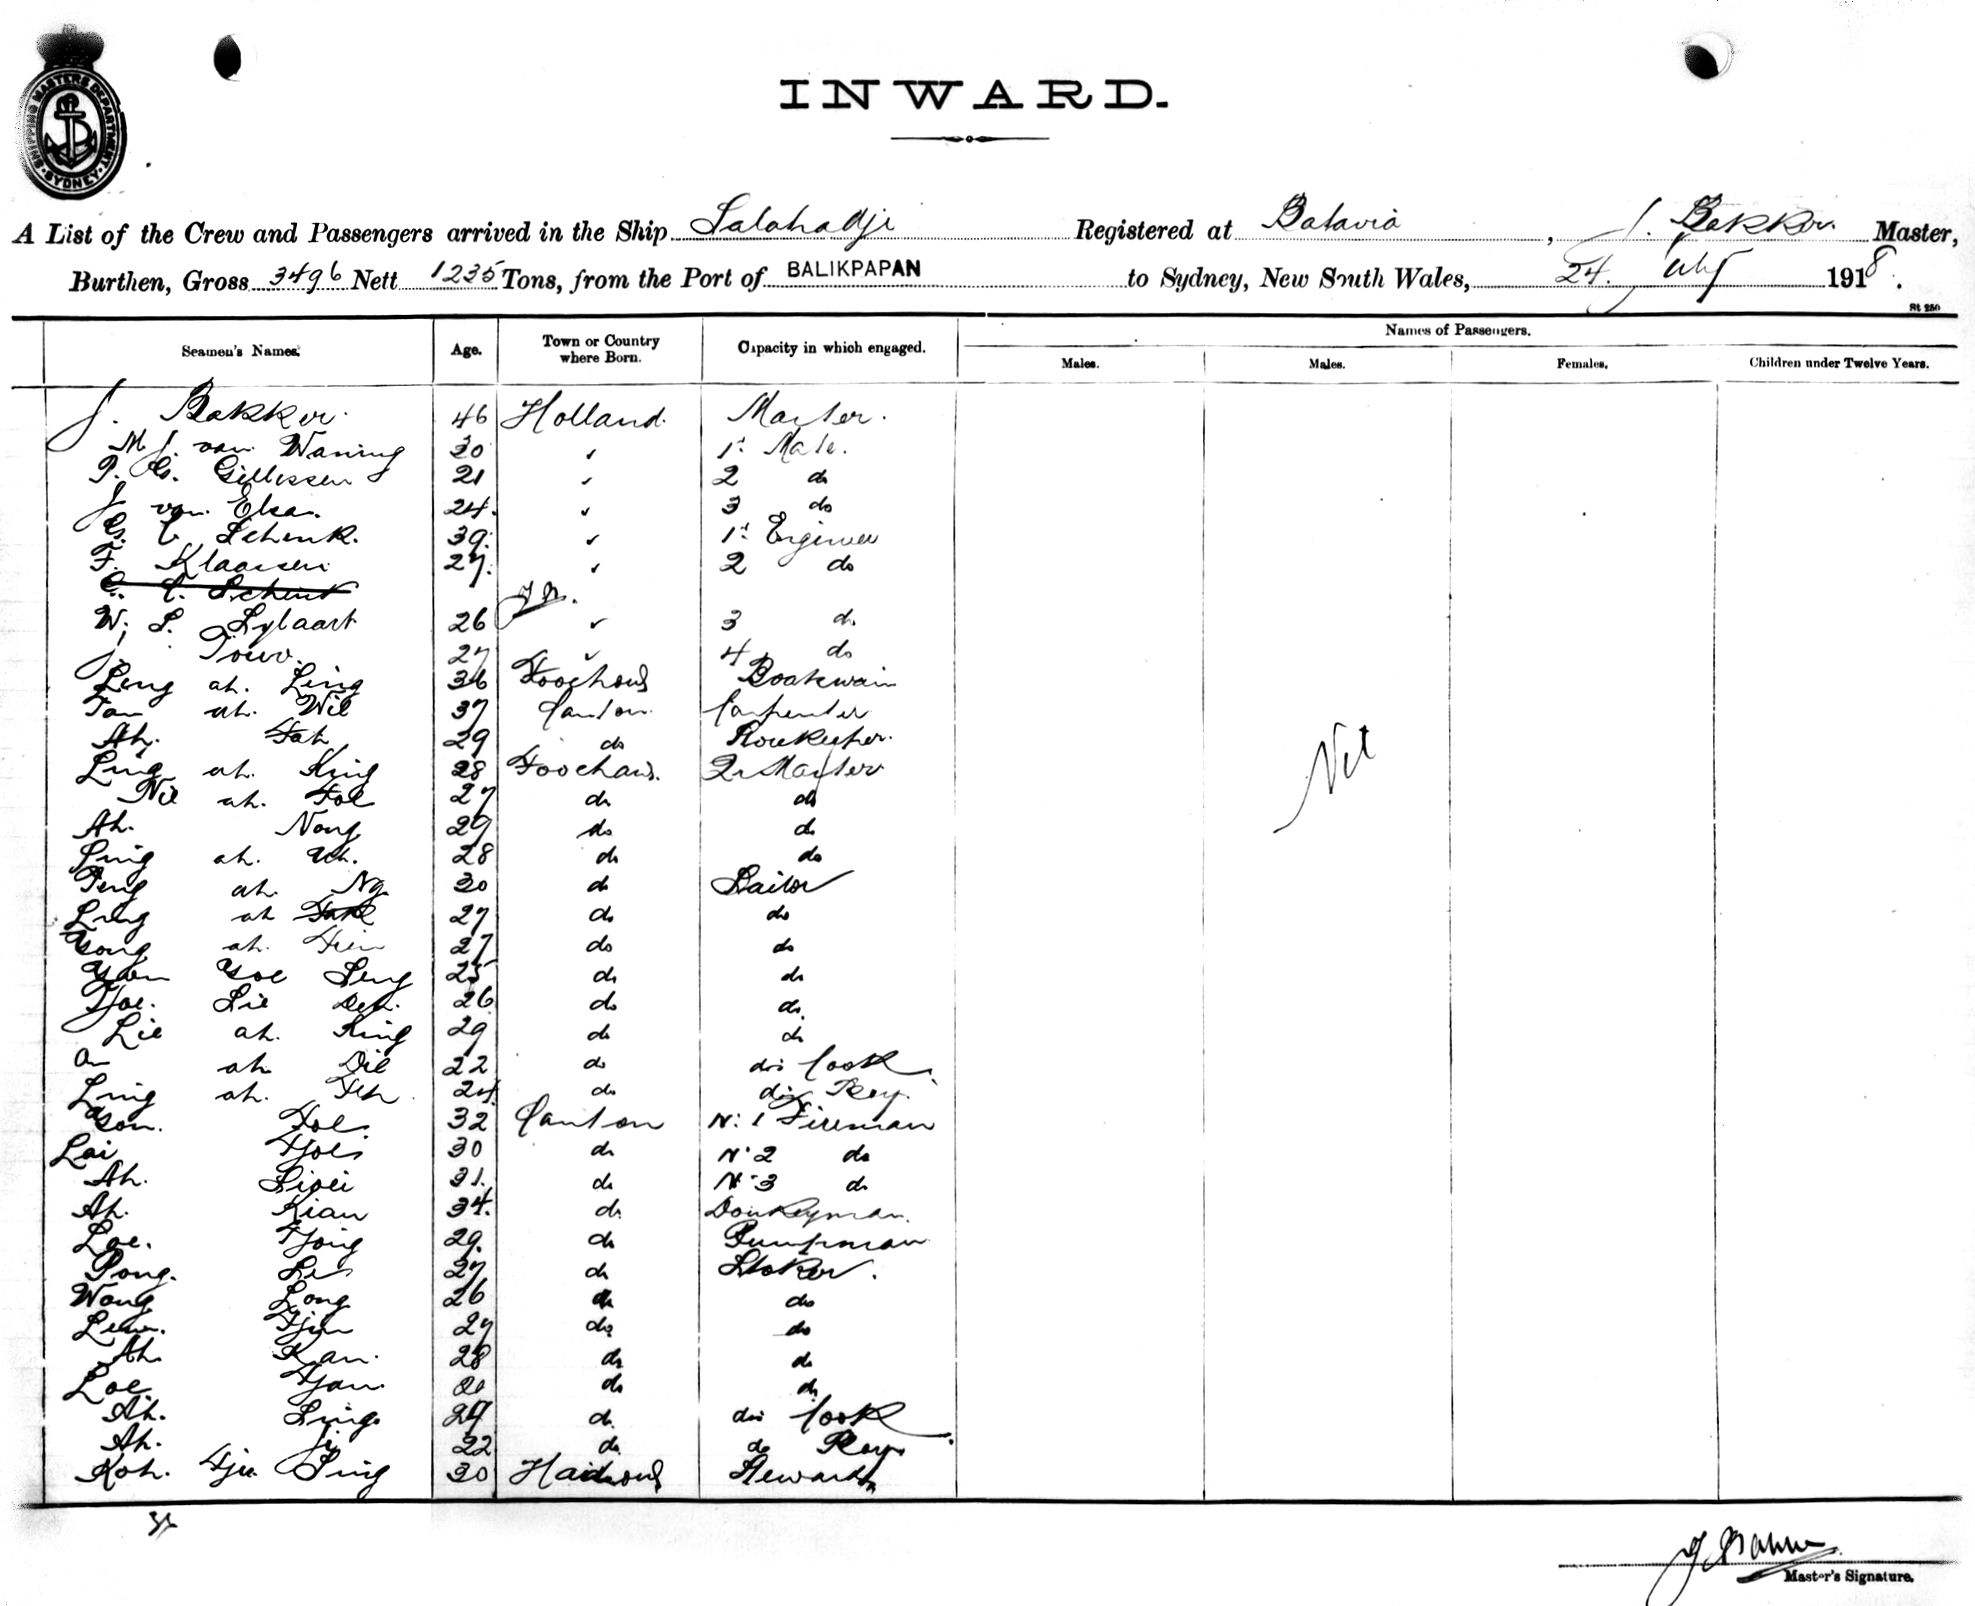 SHIPPING MASTERS DEPARTMENT
SYDNEY
INWARD.
A List of the Crew and Passengers arrived in the Ship Salahadji Registered at Batavia, J. Bakker Master,
Burthen, Gross 3496 Nett 1235 Tons, from the Port of BALIKPAPAN to Sydney, New South Wales, 24. July 1918.
St 250
Seamen's Names. Age. Town or Country where Born. Capacity in which engaged. Names of Passengers.
Males. Males. Females. Children under Twelve Years.
J. Bakker. 46 Holland. Master.
M J. van Waning 30 1st Mate.
P. G. Gillissen 21 2 do
J. van Elsa. 24. 3 do
G. C. Schenk. 39. 1st Engineer
F. Klaassen 27. 2 do
C. C. Schenk
W. S. Sylaart 26 3 do
J. Touw. 27 4 do
Leng ah. Ling 36 Foochow Boatswain
Tan ah. Wie 37 Canton. Carpenter
Ah. Fah 29 do
Ling ah. King 28 Foochow. Qr Master
Nie ah. Foe 27 do do
Ah. Nong 29 do do
Ling ah. 28 do do
Peng ah. Ng. 30 do Sailor
Ling ah 27 do do
Tsong ah. 27 do do
Yoe Seng 25 do do
Tjoe. Sie 26 do do
Lie ah. King 29 do do
ah 22 do do Cook.
Ling ah. 24. do do Boy.
Foe. 32 Canton No 1 Fireman
Lai Tjoei 30 do No 2 do
Ah. 31. do No 3 do
Ah. Kian 34. do Donkeyman.
Loe. Tjong 29. do Pumpman
Pong. 27 do Stoker.
Wong Long 26 do do
Tjin 27 do do
Ah. Kan. 28 do do
Loe Tjan. do do
Ah. Ling. 29 do do Cook
Ah. 22 do do Boy
Koh. Tju Sing 30 Steward
Nil
Master's Signature.